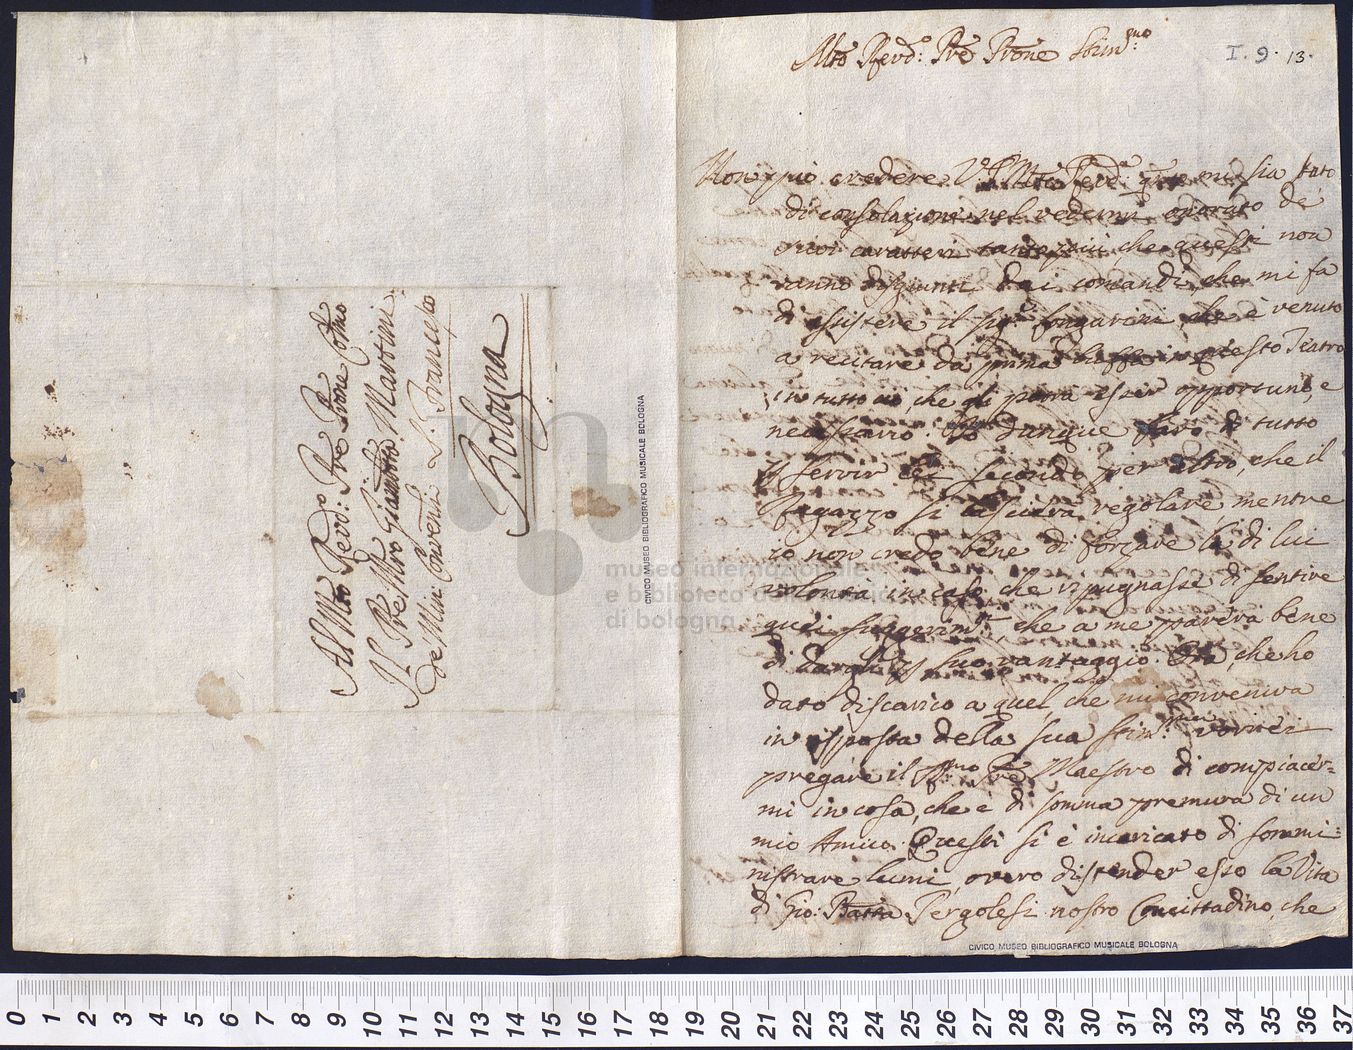 Al Mto Revdo: Pre Prone Colmo
Il Pre Mro Giambta Martini
de Mini Conventi S. Francesco
Bologna
museo internazionale
e biblioteca della musica
di bologna
CIVICO MUSEO BIBLIOGRAFICO MUSICALE BOLOGNA
Mto Revdo: Pre Prone Stimmo
I. 9. 13.
Non può credere V. P. Mto Revda: qto mi sia stato
di consolazione nel vedermi onorato de
suoi caratteri tanto più che questi non
vanno disgiunti dai comandi, che mi fa
di assistere il Sigr Songarini, che è venuto
a recitare da prima buffa in questo Teatro
in tutto ciò, che gli possa esser opportuno, e
necessario. Io dunque farò di tutto
p servir Lei secondo per altro, che il
Ragazzo si lascierà regolare mentre
io non credo bene di forzare la di lui
volontà in caso che ripugnasse di sentire
quei suggerimti, che a me pareva bene
di dargli p suo vantaggio. Ora, che ho
dato discarico a quel, che mi conveniva
in risposta della sua stimma vorrei
pregare il Pre Maestro di compiacer=
mi in cosa, che è di somma premura di un
mio Amico. Questi si è incaricato di sommi=
nistrare lumi, overo distender esso la Vita
di Gio: Batta Pergolesi nostro Concittadino, che
CIVICO MUSEO BIBLIOGRAFICO MUSICALE BOLOGNA
0 1 2 3 4 5 6 7 8 9 10 11 12 13 14 15 16 17 18 19 20 21 22 23 24 25 26 27 28 29 30 31 32 33 34 35 36 37